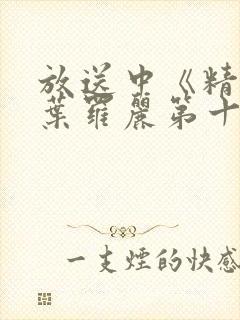 放送中《精
葉羅麗第十
一支煙的快感